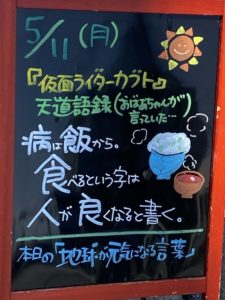 5/11(月)
『仮面ライダーカブト』
天道語録(おばあちゃんが
言っていた…)
病は飯から。
食べるという字は
人が良くなると書く。
本日の「地球が元気になる言葉」